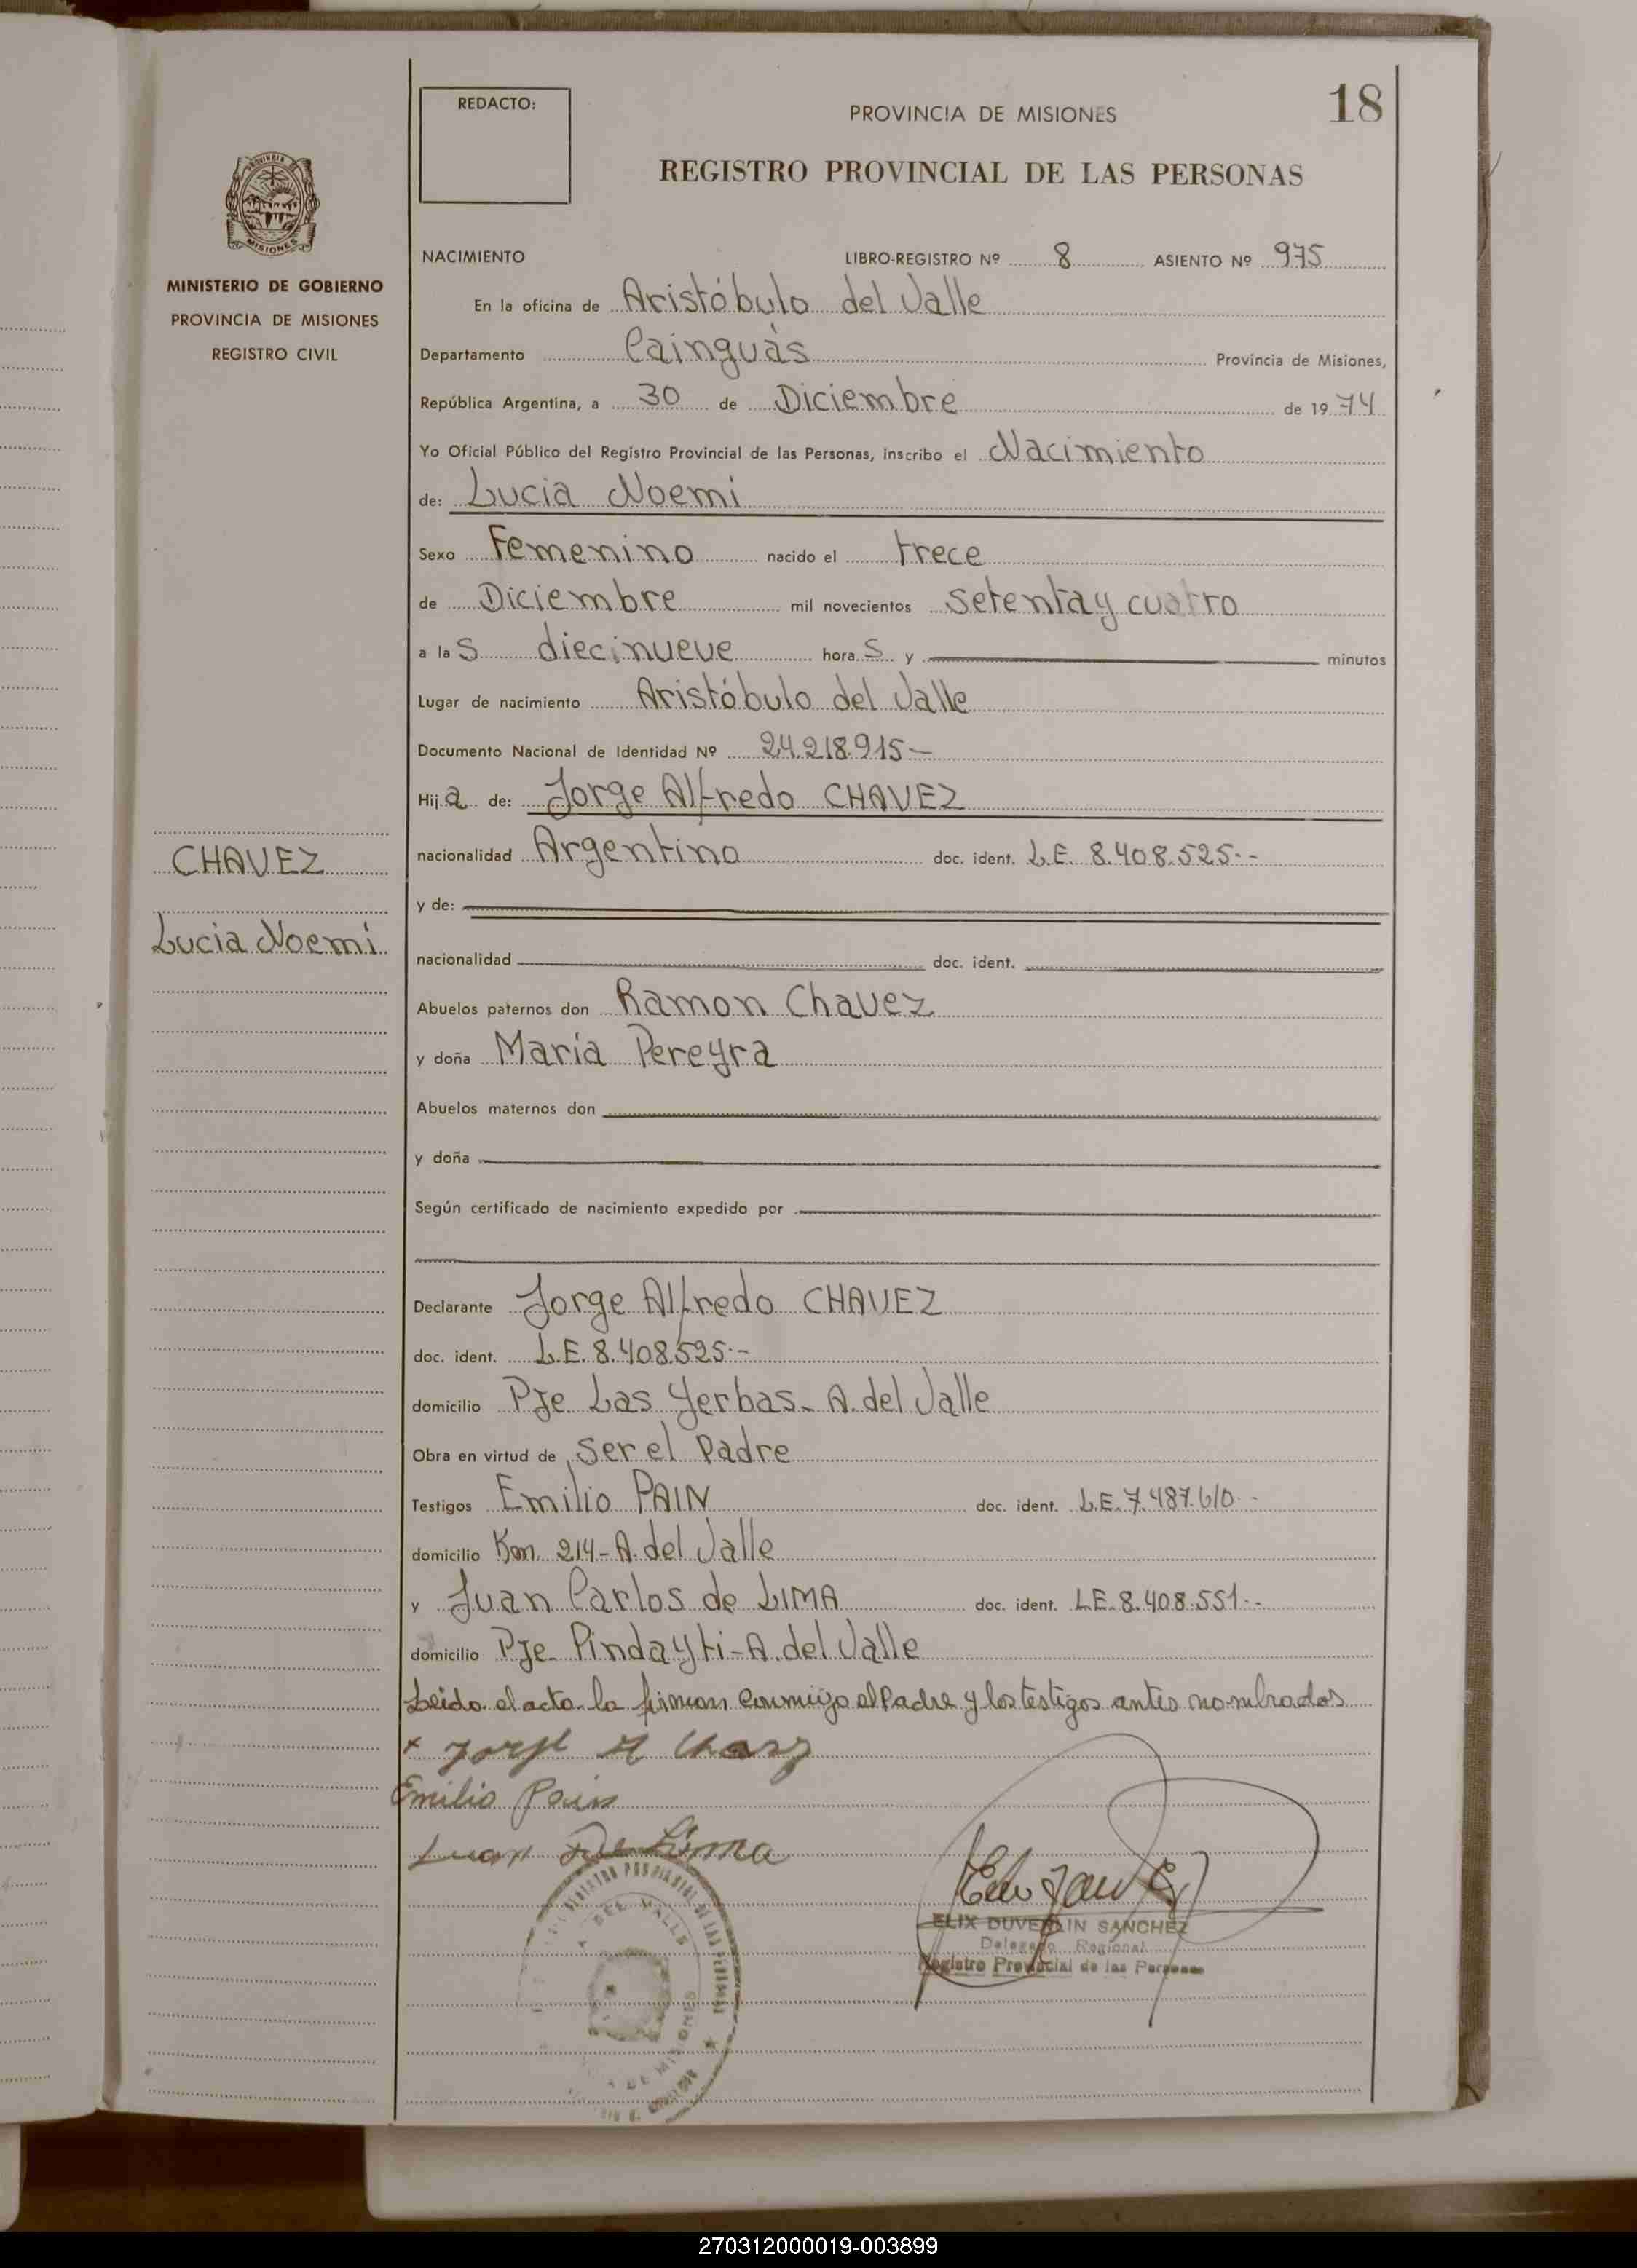 18
REDACTO:
PROVINCIA DE MISIONES
REGISTRO PROVINCIAL DE LAS PERSONAS
PROVINCIA DE
MISIONES
MINISTERIO DE GOBIERNO
PROVINCIA DE MISIONES
REGISTRO CIVIL
CHAVEZ
Lucia Noemi
NACIMIENTO LIBRO-REGISTRO Nº 8 ASIENTO Nº 975
En la oficina de Aristóbulo del Valle
Departamento Cainguás Provincia de Misiones,
República Argentina, a 30 de Diciembre de 1974
Yo Oficial Público del Registro Provincial de las Personas, inscribo el Nacimiento
de: Lucia Noemi
Sexo Femenino nacido el trece
de Diciembre mil novecientos setenta y cuatro
a las diecinueve horas y minutos
Lugar de nacimiento Aristóbulo del Valle
Documento Nacional de Identidad Nº 24.218.915-
Hija de: Jorge Alfredo CHAVEZ
nacionalidad Argentino doc. ident. L.E. 8.408.525.-
y de:
nacionalidad doc. ident.
Abuelos paternos don Ramon Chavez
y doña María Pereyra
Abuelos maternos don
y doña
Según certificado de nacimiento expedido por
Declarante Jorge Alfredo CHAVEZ
doc. ident. L.E. 8.408.525.-
domicilio Pje Las Yerbas- A. del Valle
Obra en virtud de ser el Padre
Testigos Emilio PAIN doc. ident. L.E. 7.487.610.-
domicilio Km. 214- A. del Valle
y Juan Carlos de LIMA doc. ident. L.E. 8.408.551.-
domicilio Pje Pindayti- A. del Valle
Leida el acta la firman conmigo el Padre y los testigos antes nombrados
Emilio Pain
Juan De Lima
REGISTRO PROVINCIAL DE LAS PERSONAS
A. DEL VALLE
DE MISIONES
ELIX DUVERLIN SANCHEZ
Delegado Regional
Registro Provincial de las Personas
270312000019-003899